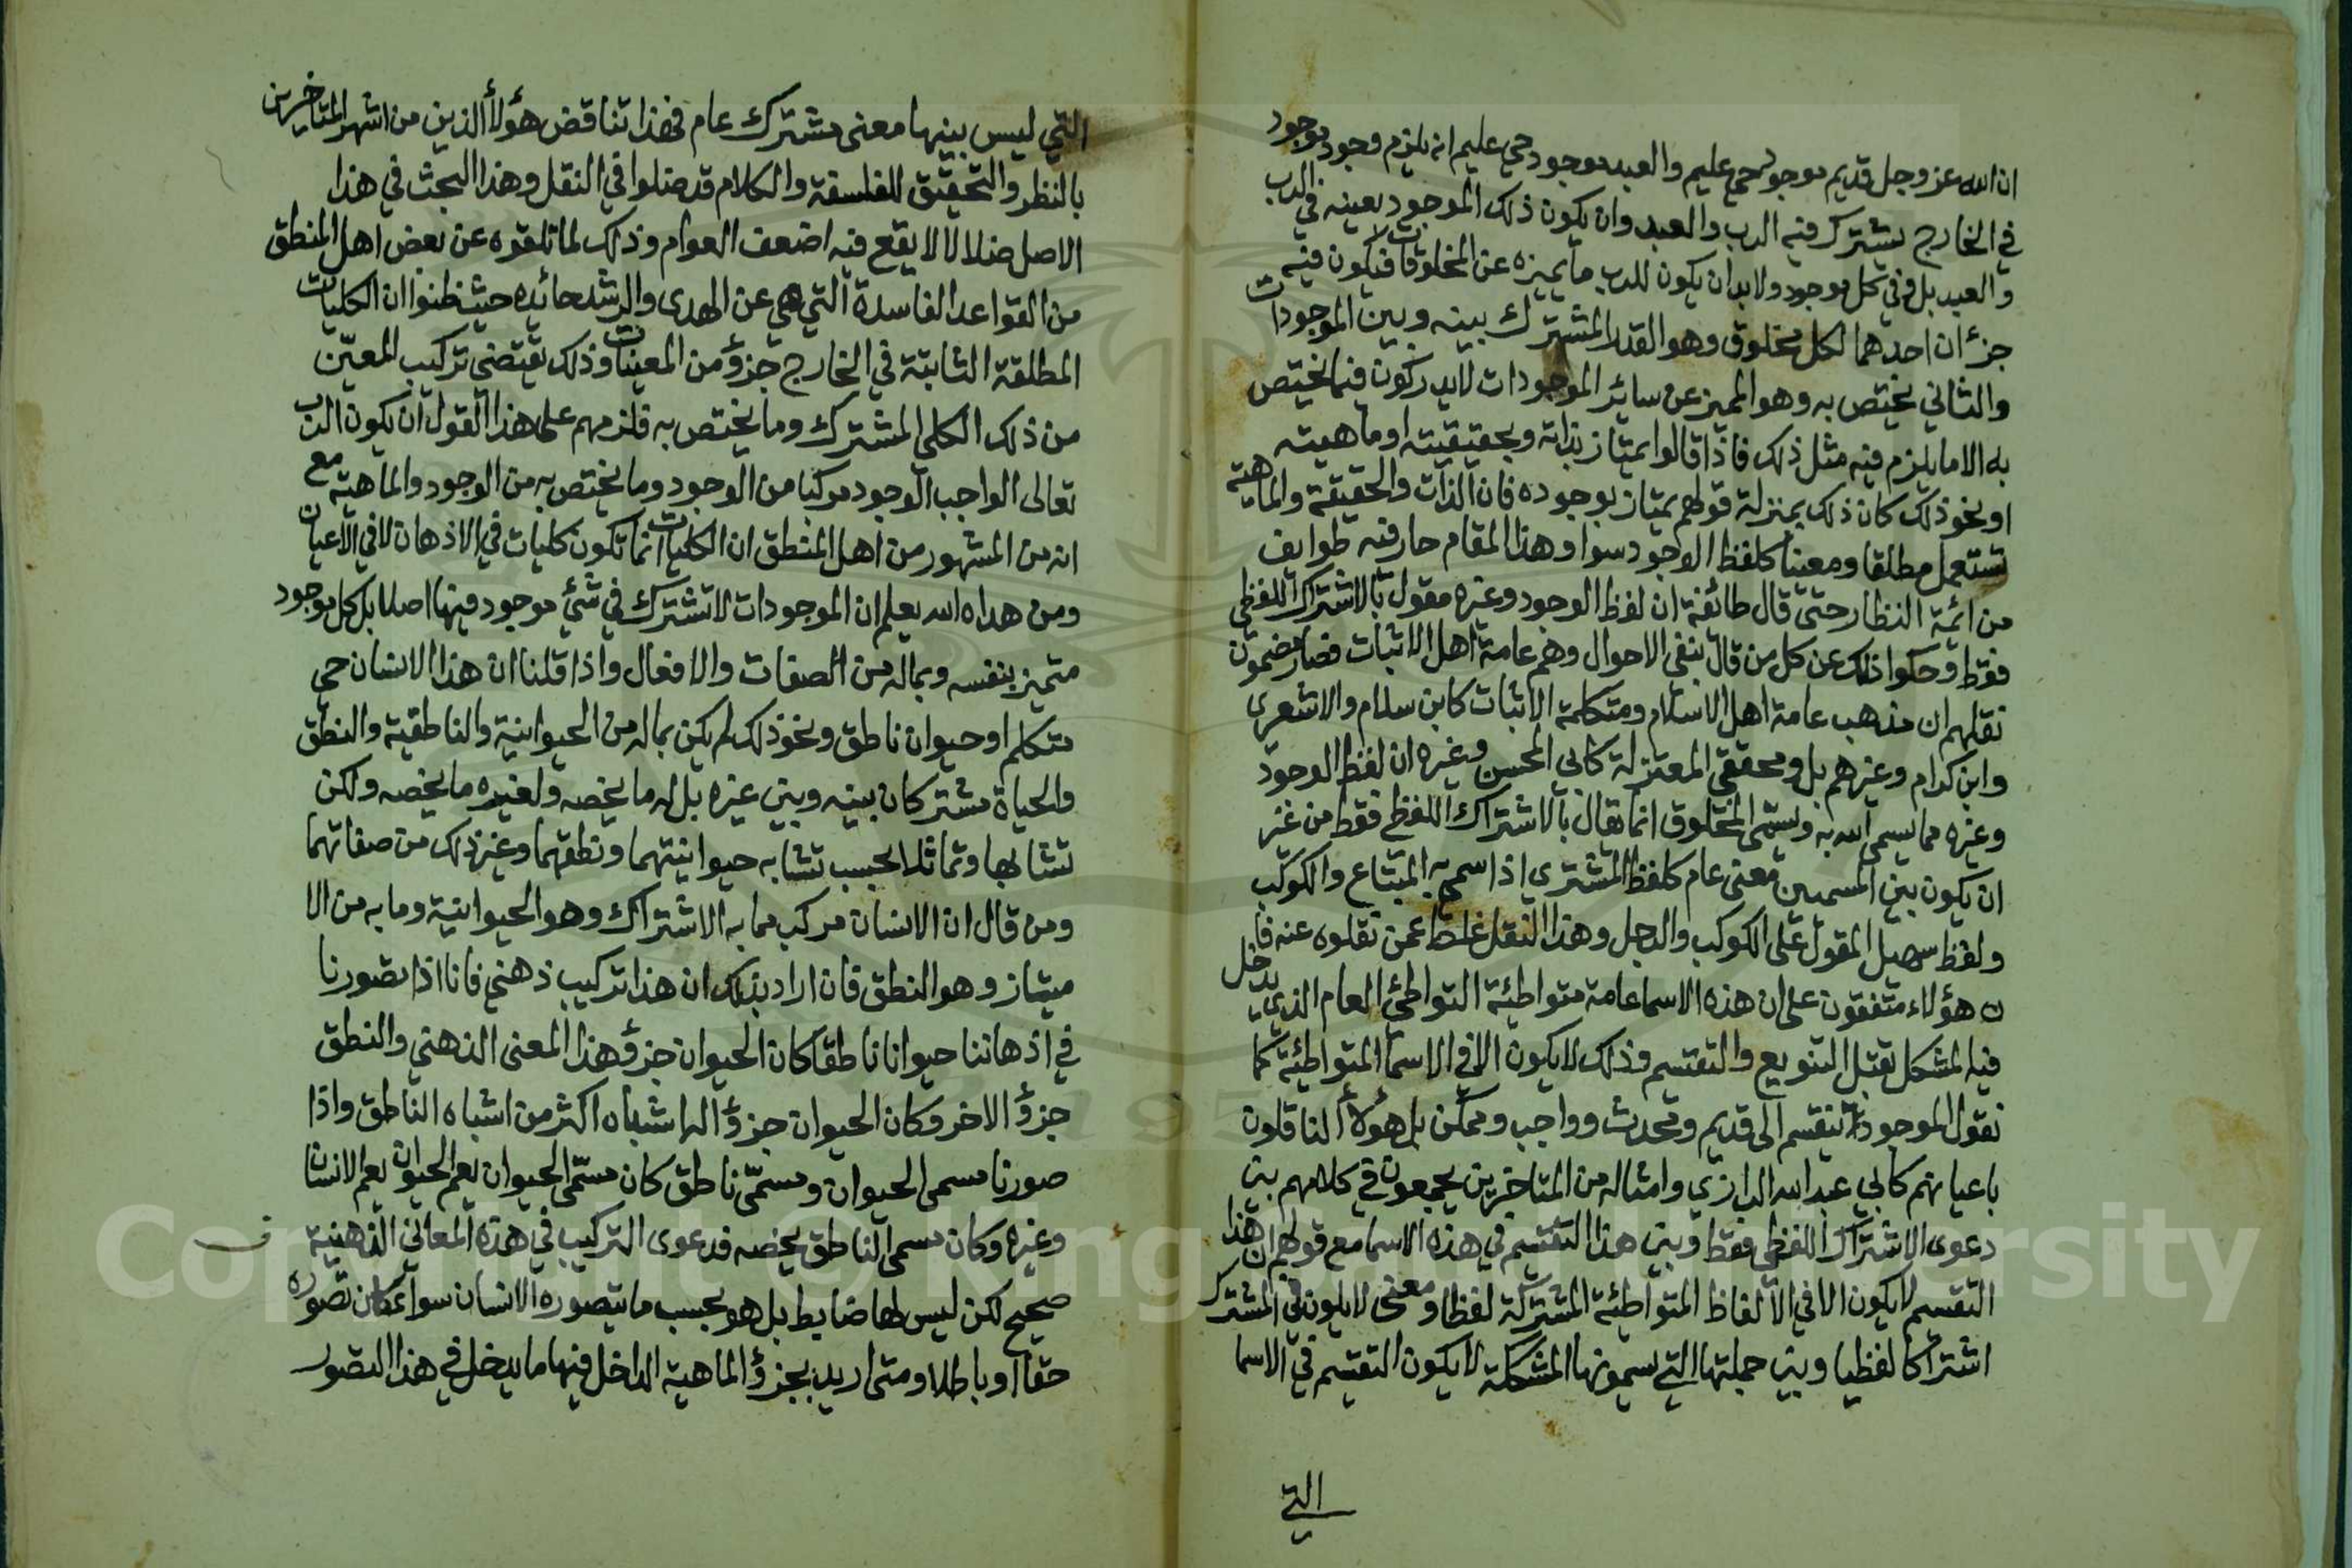 ان الله عز وجل قديم موجود حي عليم والعبد موجود حي عليم انه يلزم وجود موجود
في الخارج يشترك فيه الرب والعبد وان يكون ذلك الموجود بعينه في الرب
والعبد بل وفي كل موجود ولا بد ان يكون للرب ما يميزه عن المخلوقات فيكون فيه
جزءان احدهما لكل مخلوق وهو القدر المشترك بينه وبين الموجودات
والثاني يختص به وهو المميز عن سائر الموجودات لا يدركون فيما يختص
به الا ما يلزم فيه مثل ذلك فاذا قالوا يمتاز بذاته وبحقيقته او ماهيته
او نحو ذلك كان ذلك بمنزلة قولهم يمتاز بوجوده فان الذات والحقيقة والماهية
تستعمل مطلقا ومعينا كلفظ الوجود سوا وهذا المقام حار فيه طوايف
من ائمة النظار حتى قال طائفة ان لفظ الوجود وغيره مقول بالاشتراك اللفظي
فقط وحكوا ذلك عن كل من قال بنفي الاحوال وهم عامة اهل الاثبات فصار مضمون
نقلهم ان مذهب عامة اهل الاسلام ومتكلمة الاثبات كابن سلام والاشعري
وابن كرام وغيرهم بل ومحققي المعتزلة كابي الحسن وغيره ان لفظ الوجود
وغيره مما يسمى الله به ويسمى المخلوق انما يقال بالاشتراك اللفظي فقط من غير
ان يكون بين المسميين معنى عام كلفظ المشتري اذا سمي به المبتاع والكوكب
ولفظ سهيل المقول على الكوكب والرجل وهذا النقل غلط عمن نقلوه عنه فا
ن هؤلاء متفقون على ان هذه الاسما عامة متواطئة التواطئ العام الذي يدخل
فيه المشكل تقبل التنويع والتقسيم وذلك لا يكون الا في الاسما المتواطئة كما
نقول الموجود ينقسم الى قديم ومحدث وواجب وممكن بل هؤلأ الناقلون
باعيانهم كابي عبد الله الرازي وامثاله من المتاخرين يجمعون في كلامهم بين
دعوى الاشتراك اللفظي فقط وبين هذا التقسيم في هذه الاسما مع قولهم ان هذا
التقسيم لا يكون الا في الالفاظ المتواطئة المشتركة لفظا ومعنى لا يكون في المشترك
اشتراكا لفظيا وبين جملتها التي يسمونها المشكلة لا يكون التقسيم في الاسما
التي
التي ليس بينها معنى مشترك عام فهذا تناقض هؤلأ الذين من اشهر المتاخرين
بالنظر والتحقيق للفلسفة والكلام قد ضلوا في النقل وهذا البحث في هذا
الاصل ضلالا لا يقع فيه اضعف العوام وذلك لما تلقوه عن بعض اهل المنطق
من القواعد الفاسدة التي هي عن الهدى والرشد حائده حيث ظنوا ان الكليات
المطلقة الثابتة في الخارج جزؤ من المعينات وذلك يقتضي تركيب المعيّن
من ذلك الكلي المشترك وما يختص به فلزمهم على هذا القول ان يكون الرب
تعالى الواجب الوجود مركبا من الوجود وما يختص به من الوجود والماهية مع
انه من المشهور من اهل المنطق ان الكليات انما تكون كليات في الاذهان لا في الاعيان
ومن هداه الله يعلم ان الموجودات لا تشترك في شئ موجود فيها اصلا بل كل موجود
متميز بنفسه وبما له من الصفات والافعال واذا قلنا ان هذا الانسان حي
متكلم او حيوان ناطق ونحو ذلك لم يكن بماله من الحيوانية والناطقية والنطق
والحياة مشتركان بينه وبين غيره بل له ما يخصه ولغيره ما يخصه ولكن
تشابها وتماثلا بحسب تشابه حيوانيتهما ونطقهما وغير ذلك من صفاتهما
ومن قال ان الانسان مركب مما به الاشتراك وهو الحيوانية وما به من الا
متياز وهو النطق فان اراد بذلك ان هذا تركيب ذهني فانا اذا تصورنا
في اذهاننا حيوانا ناطقا كان الحيوان جزؤ هذا المعنى الذهني والنطق
جزؤ الاخر وكان الحيوان جزؤ الها شباه اكثر من اشباه الناطق واذا
صورنا مسمى الحيوان ومسمّى ناطق كان مسمّى الحيوان يعم الحيوان يعم الانسان
وغيره وكان مسمى الناطق يخصه فدعوى التركيب في هذه المعاني الذهنية
صحيح لكن ليس لها ضابط بل هو بحسب ما يتصوره الانسان سوا كان تصوره
حقا او باطلا ومتى اريد بجزؤ الماهية الداخل فيها ما يدخل في هذا التصور